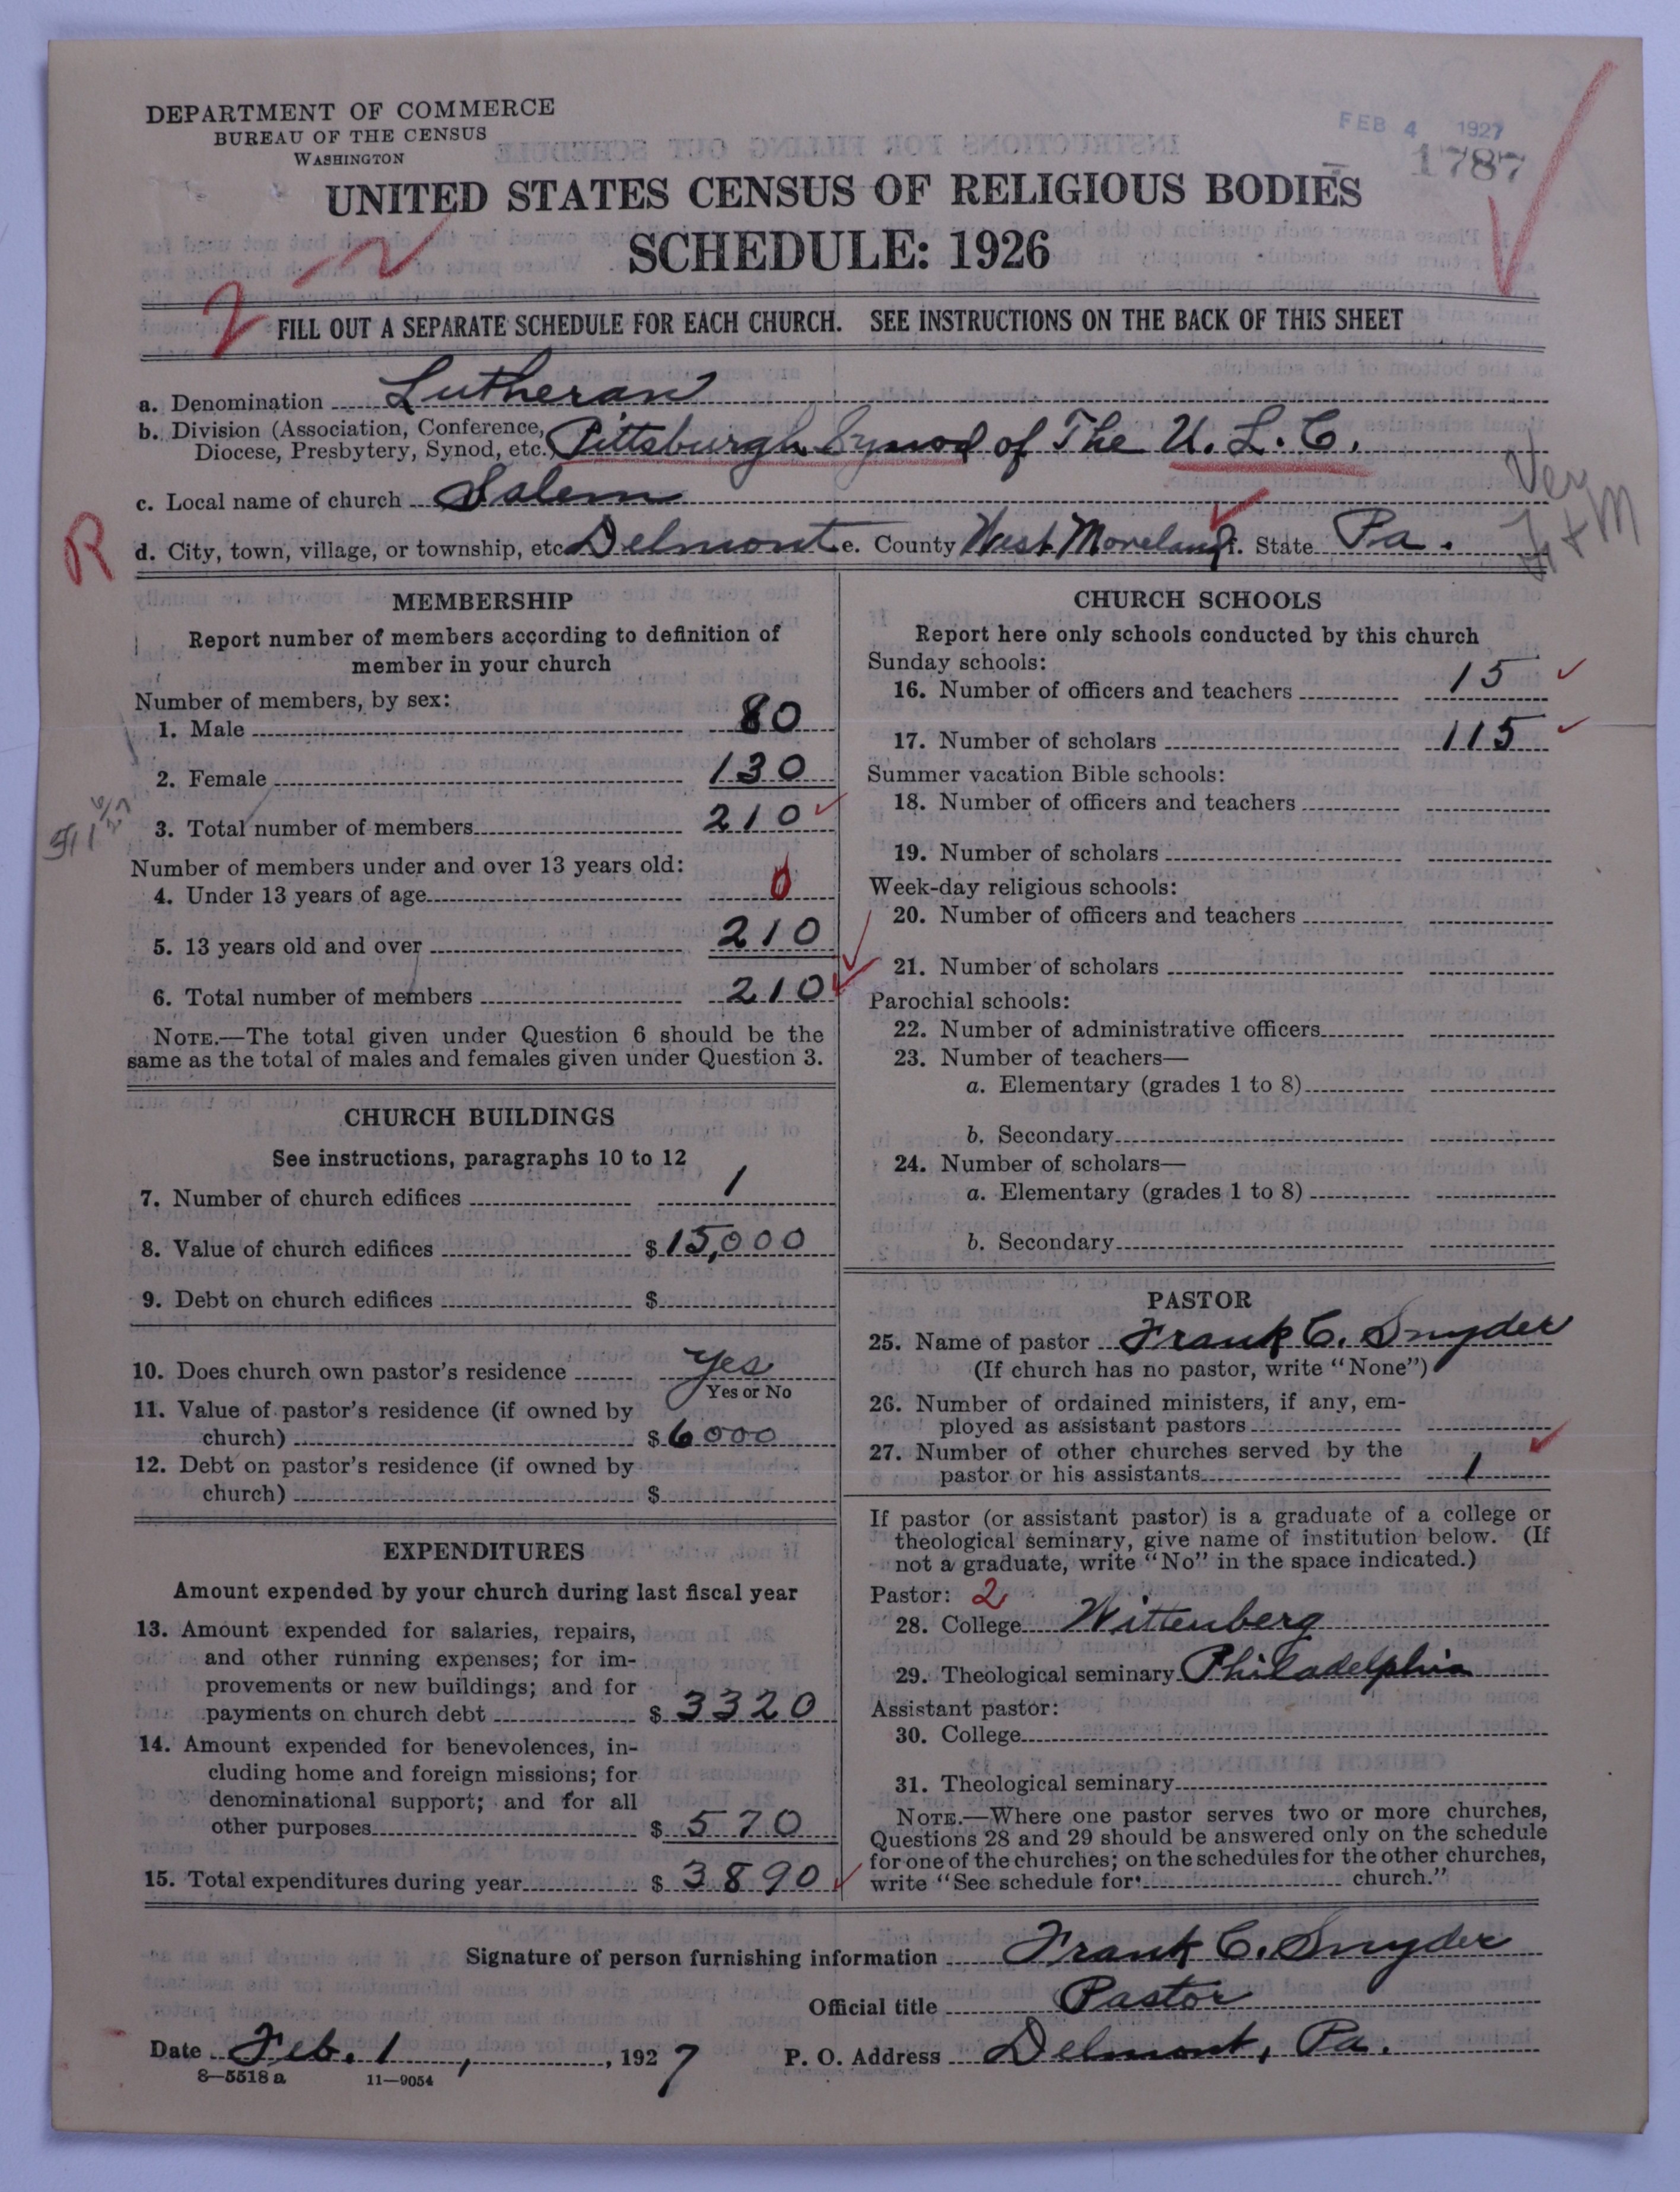 DEPARTMENT OF COMMERCE
BUREAU OF THE CENSUS
WASHINGTON
FEB 4 1927
1787
UNITED STATES CENSUS OF RELIGIOUS BODIES
SCHEDULE: 1926
2 - 2
FILL OUT A SEPARATE SCHEDULE FOR EACH CHURCH. SEE INSTRUCTIONS ON THE BACK OF THIS SHEET
a. Denomination Lutheran
b. Division (Association, Conference,
Diocese, Presbytery, Synod, etc.) Pittsburgh Synod of The U. L. C.
c. Local name of church Salem
R
d. City, town, village, or township, etc. Delmont e. County West Moreland f. State Pa.
Ver
F + M
MEMBERSHIP
Report number of members according to definition of
member in your church
Number of members, by sex:
1. Male 80
2. Female 130
3. Total number of members 210
Number of members under and over 13 years old:
4. Under 13 years of age 0
5. 13 years old and over 210
6. Total number of members 210
NOTE.—The total given under Question 6 should be the
same as the total of males and females given under Question 3.
CHURCH BUILDINGS
See instructions, paragraphs 10 to 12
7. Number of church edifices 1
8. Value of church edifices $15,000
9. Debt on church edifices $
10. Does church own pastor's residence Yes
Yes or No
11. Value of pastor's residence (if owned by
church) $6000
12. Debt on pastor's residence (if owned by
church) $
EXPENDITURES
Amount expended by your church during last fiscal year
13. Amount expended for salaries, repairs,
and other running expenses; for im-
provements or new buildings; and for
payments on church debt $3320
14. Amount expended for benevolences, in-
cluding home and foreign missions; for
denominational support; and for all
other purposes $570
15. Total expenditures during year $3890
CHURCH SCHOOLS
Report here only schools conducted by this church
Sunday schools:
16. Number of officers and teachers 15
17. Number of scholars 115
Summer vacation Bible schools:
18. Number of officers and teachers
19. Number of scholars
Week-day religious schools:
20. Number of officers and teachers
21. Number of scholars
Parochial schools:
22. Number of administrative officers
23. Number of teachers—
a. Elementary (grades 1 to 8)
b. Secondary
24. Number of scholars—
a. Elementary (grades 1 to 8)
b. Secondary
PASTOR
25. Name of pastor Frank C. Snyder
(If church has no pastor, write "None")
26. Number of ordained ministers, if any, em-
ployed as assistant pastors
27. Number of other churches served by the
pastor or his assistants 1
If pastor (or assistant pastor) is a graduate of a college or
theological seminary, give name of institution below. (If
not a graduate, write "No" in the space indicated.)
Pastor: 2
28. College Wittenberg
29. Theological seminary Philadelphia
Assistant pastor:
30. College
31. Theological seminary
NOTE.—Where one pastor serves two or more churches,
Questions 28 and 29 should be answered only on the schedule
for one of the churches; on the schedules for the other churches,
write "See schedule for church."
Signature of person furnishing information Frank C. Snyder
Official title Pastor
Date Feb. 1, 1927 P. O. Address Delmont, Pa.
8—5518 a 11—9054